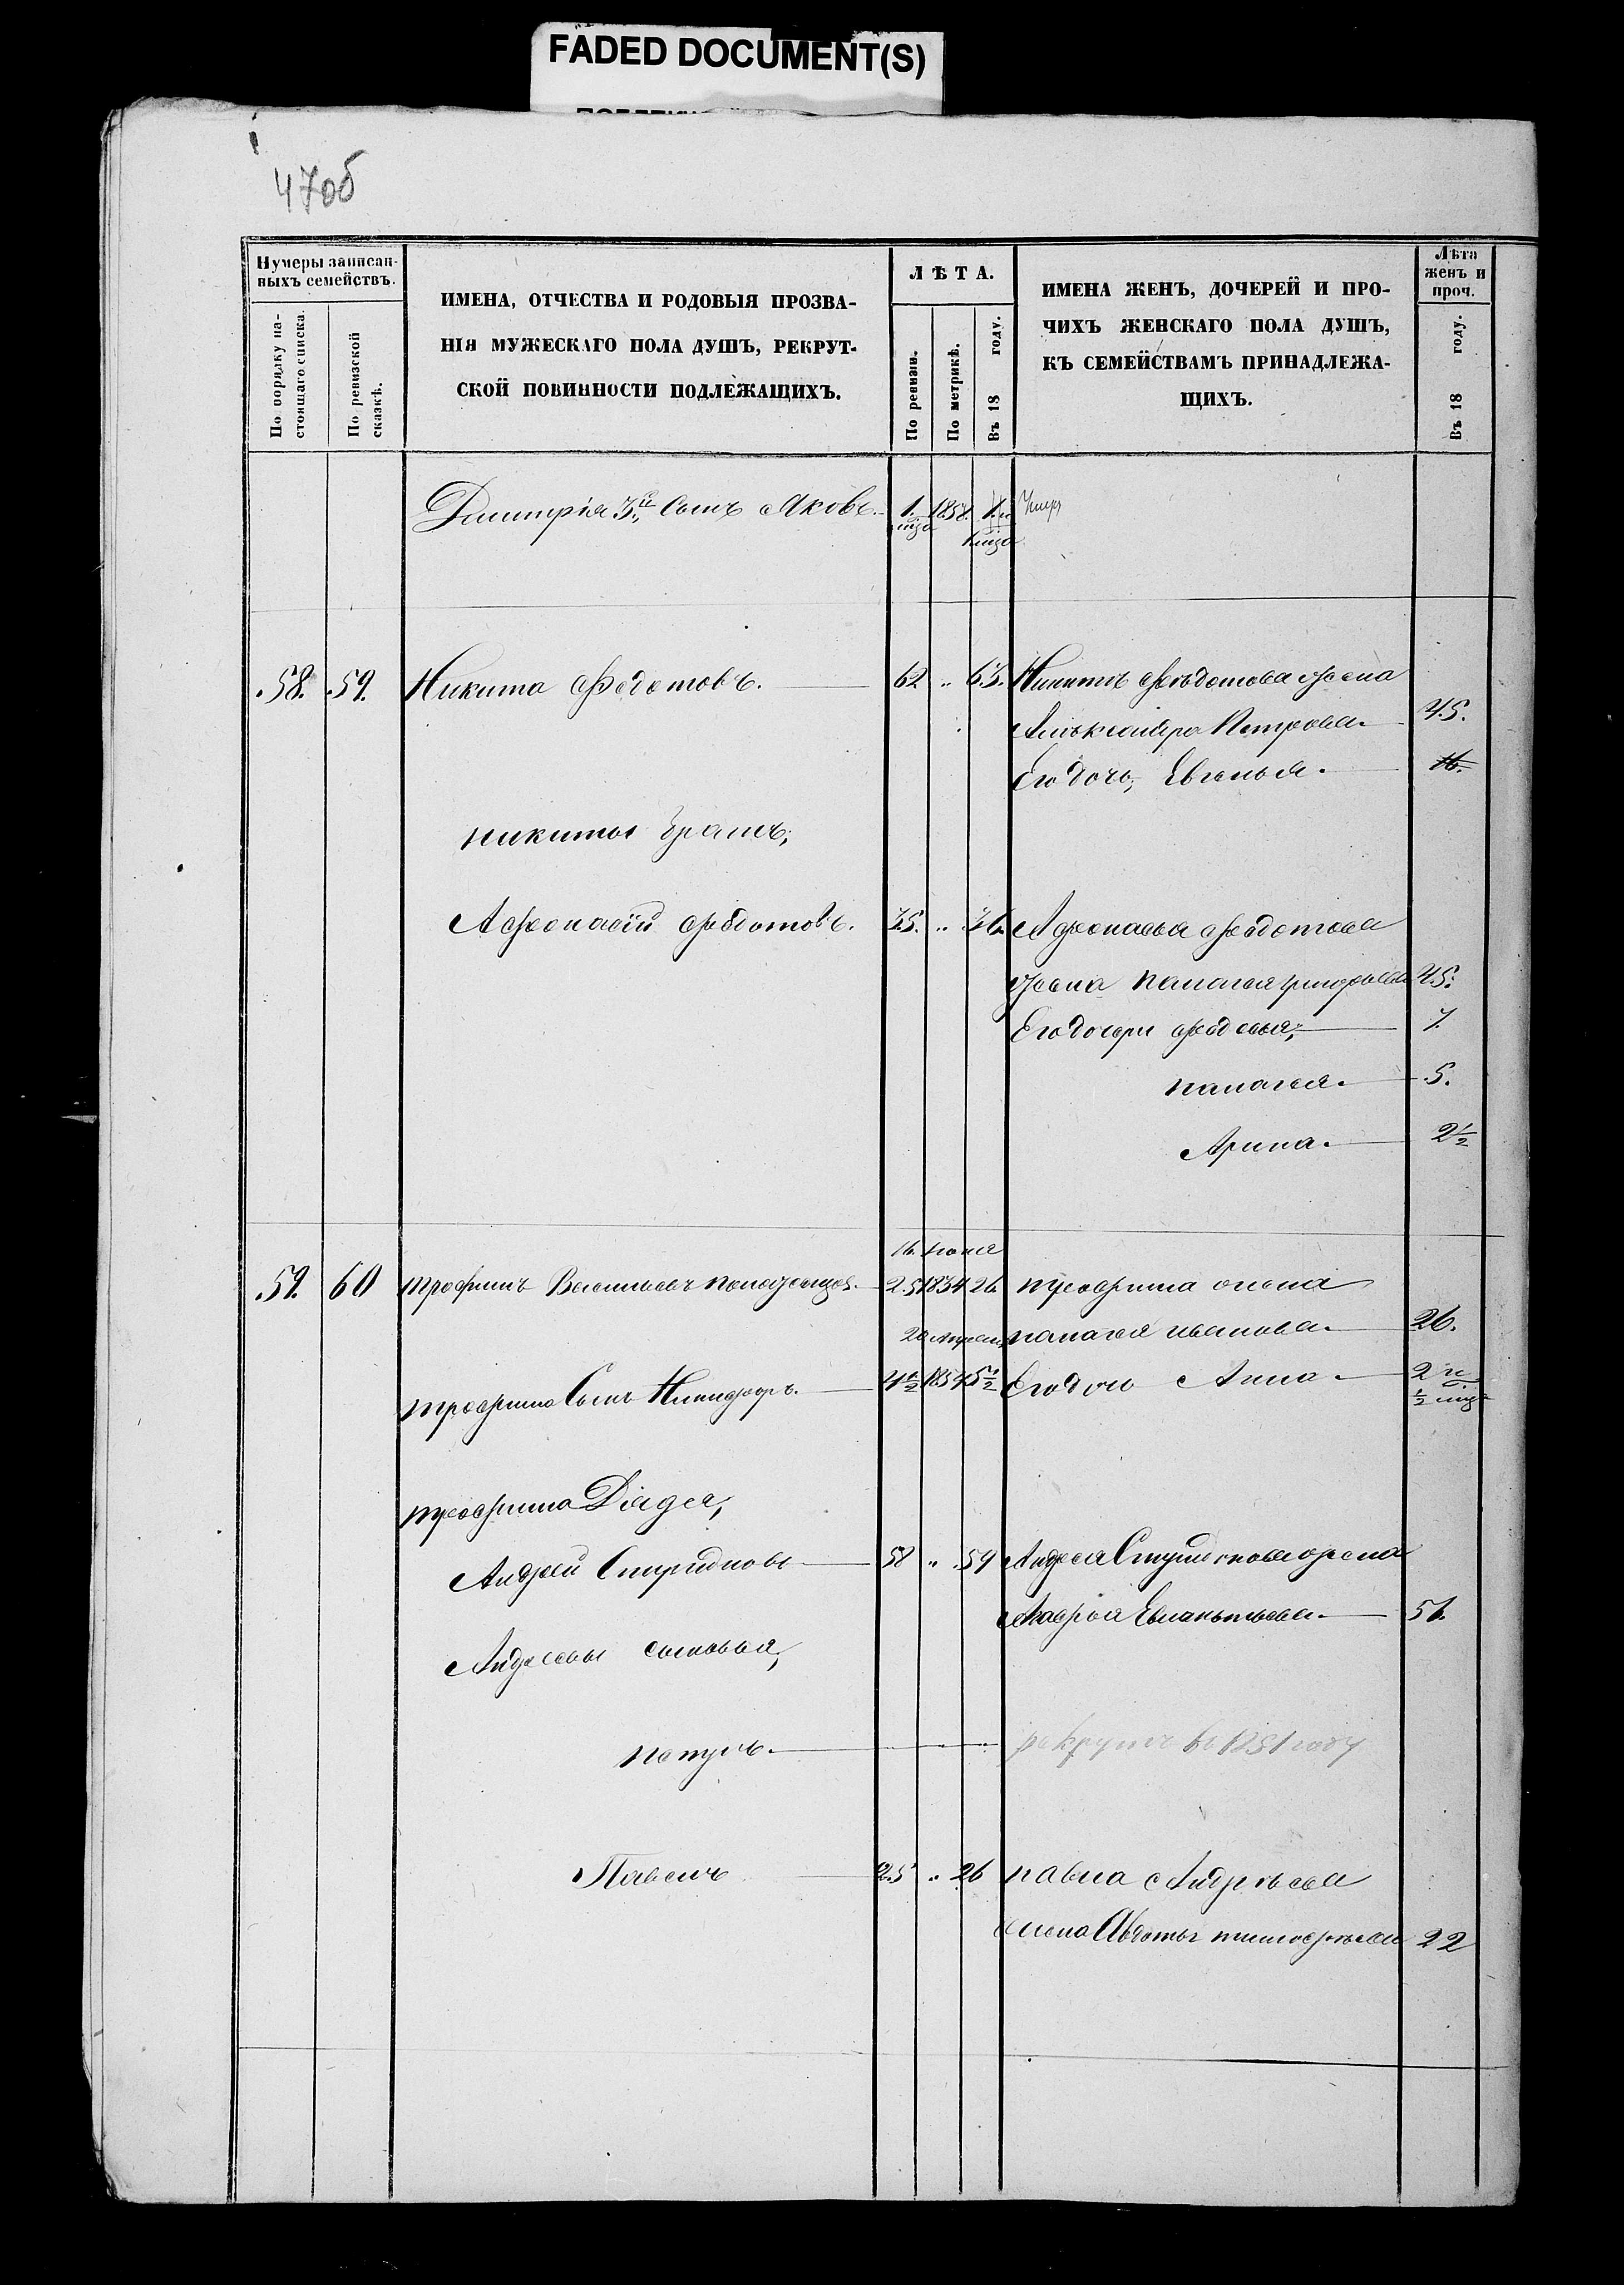 FADED DOCUMENT(S)
47об
Нумеры записан-
ныхъ семействъ.
По порядку на-
стоящаго списка.
По ревизской
сказкѣ.
ИМЕНА, ОТЧЕСТВА И РОДОВЫЯ ПРОЗВА-
НІЯ МУЖЕСКАГО ПОЛА ДУШЪ, РЕКРУТ-
СКОЙ ПОВИННОСТИ ПОДЛЕЖАЩИХЪ.
ЛѢТА.
По ревизіи.
По метрикѣ.
Въ 18 году.
ИМЕНА ЖЕНЪ, ДОЧЕРЕЙ И ПРО-
ЧИХЪ ЖЕНСКАГО ПОЛА ДУШЪ,
КЪ СЕМЕЙСТВАМЪ ПРИНАДЛЕЖА-
ЩИХЪ.
Лѣта
женъ и
проч.
Въ 18 году.
Дмитрія 3й Сынъ Яковъ. 1. 1858. 1. и Умер
мца 1 мца
58. 59. Никита Федотовъ. 62 „ 63. Никиты Федотова жена
Александра Петрова. 45.
Его дочь, Евгенья. 16.
Никиты братъ,
Афонасій Федотовъ. 35. „ 36. Афонасья Федотова
жена Пелагея Григорьева 45.
Его дочери Федосья, 7.
Пелагея. 5.
Арина. 2½
16. Іюля
59. 60 Трофимъ Васильевъ 25 1834 26. Трофима жена
20 Апреля Пелагея Иванова. 26.
Трофима Сынъ Никифоръ. 4½ 1854 5½ Его дочь Анна. 2 и
½ мца
Трофима Дядя,
Андрей Спиридоновъ 58 „ 59 Андрея Спиридонова жена
Марфа 51.
Андреевы сыновья,
Петръ. рекрутъ въ 1851 году
Павелъ 25 „ 26 Павла Андреева
жена Авдотья Тимофеева 22